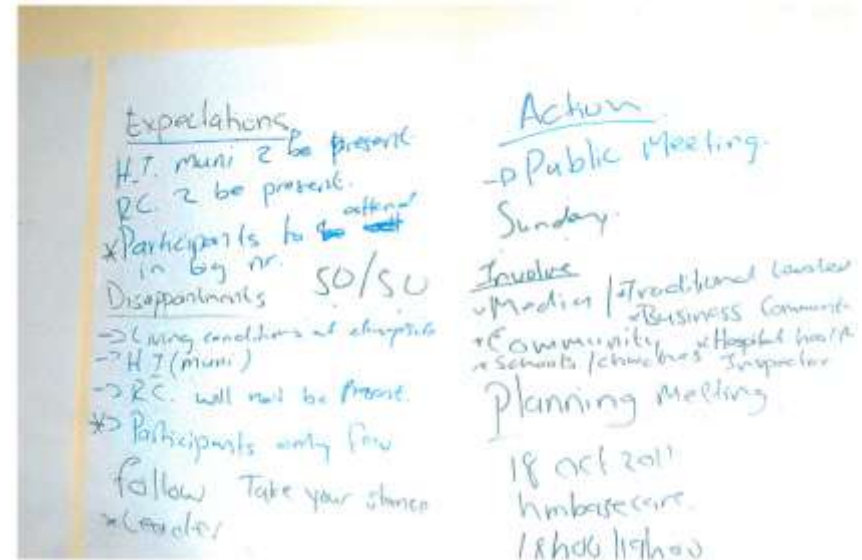 Expectations
H.T. muni 2 be present
RC. 2 be present.
*Participants to attend
in big nr.
50/50
Disappointments
-> Living conditions at
-> H T (muni)
-> RC. will not be Present.
*> Participants only few
follow Take your stance
*Leader
Action
-> Public Meeting.
Sunday.
Involve
Media / Traditional
Business
*Community *Hospital health
*Schools / churches Inspector
Planning Meeting
18 oct 2011
hmbasecare.
18h00 / 19h00